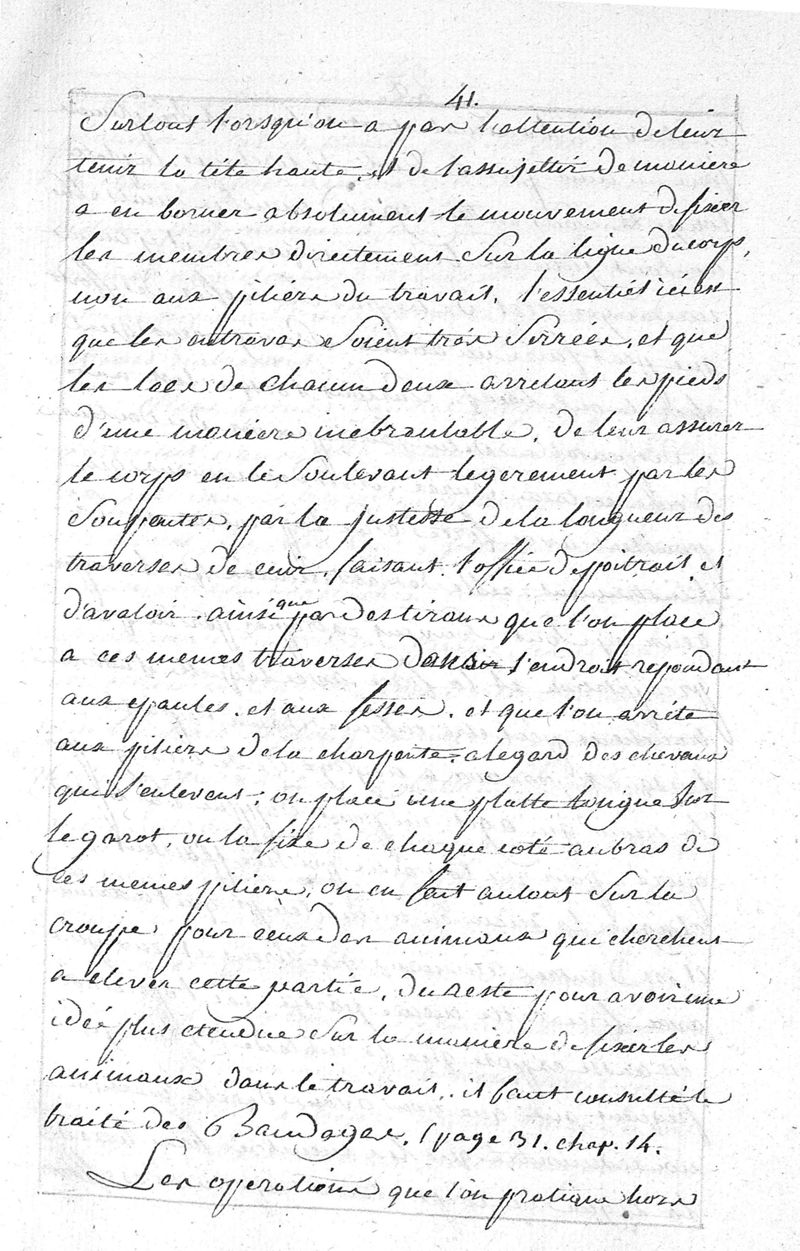 41.
Surtout lorsqu'on a par l'attention de leur
tenir la tête haute, et de l'assujettir de maniere
a en borner absolument le mouvement de fixer
les membres directement Sur la ligne du corps,
non aux piliers du travail, l'essentiel ici est
que les entraves Soient très Serrées, et que
les lacs de chacun deux arretent les pieds
d'une maniere inebranlable, de leur assurer
le corps en le Soulevant legerement par les
Soupentes, par la justesse de la longueur des
traverses de cuir, faisant l'office de poitrail et
d'avaloir, ainsi que par des tiraux que l'on place
a ces memes traverses l'endroit repondant
aux epaules, et aux fesses, et que l'on arrête
aux piliers de la charpente, alegard des chevaux
qui S'enlevent, on place une platte longue Sur
le garot, on la fixe de chaque coté au bras de
ces memes piliers, on en fait autant Sur la
croupe pour ceux des animaux qui cherchent
a elever cette partie, du reste pour avoir une
idée plus etendue Sur la maniere de fixer les
animaux dans le travail, il faut consulté le
traité des Bandages, (page 31. chap. 14.
Les operations que l'on pratique hors